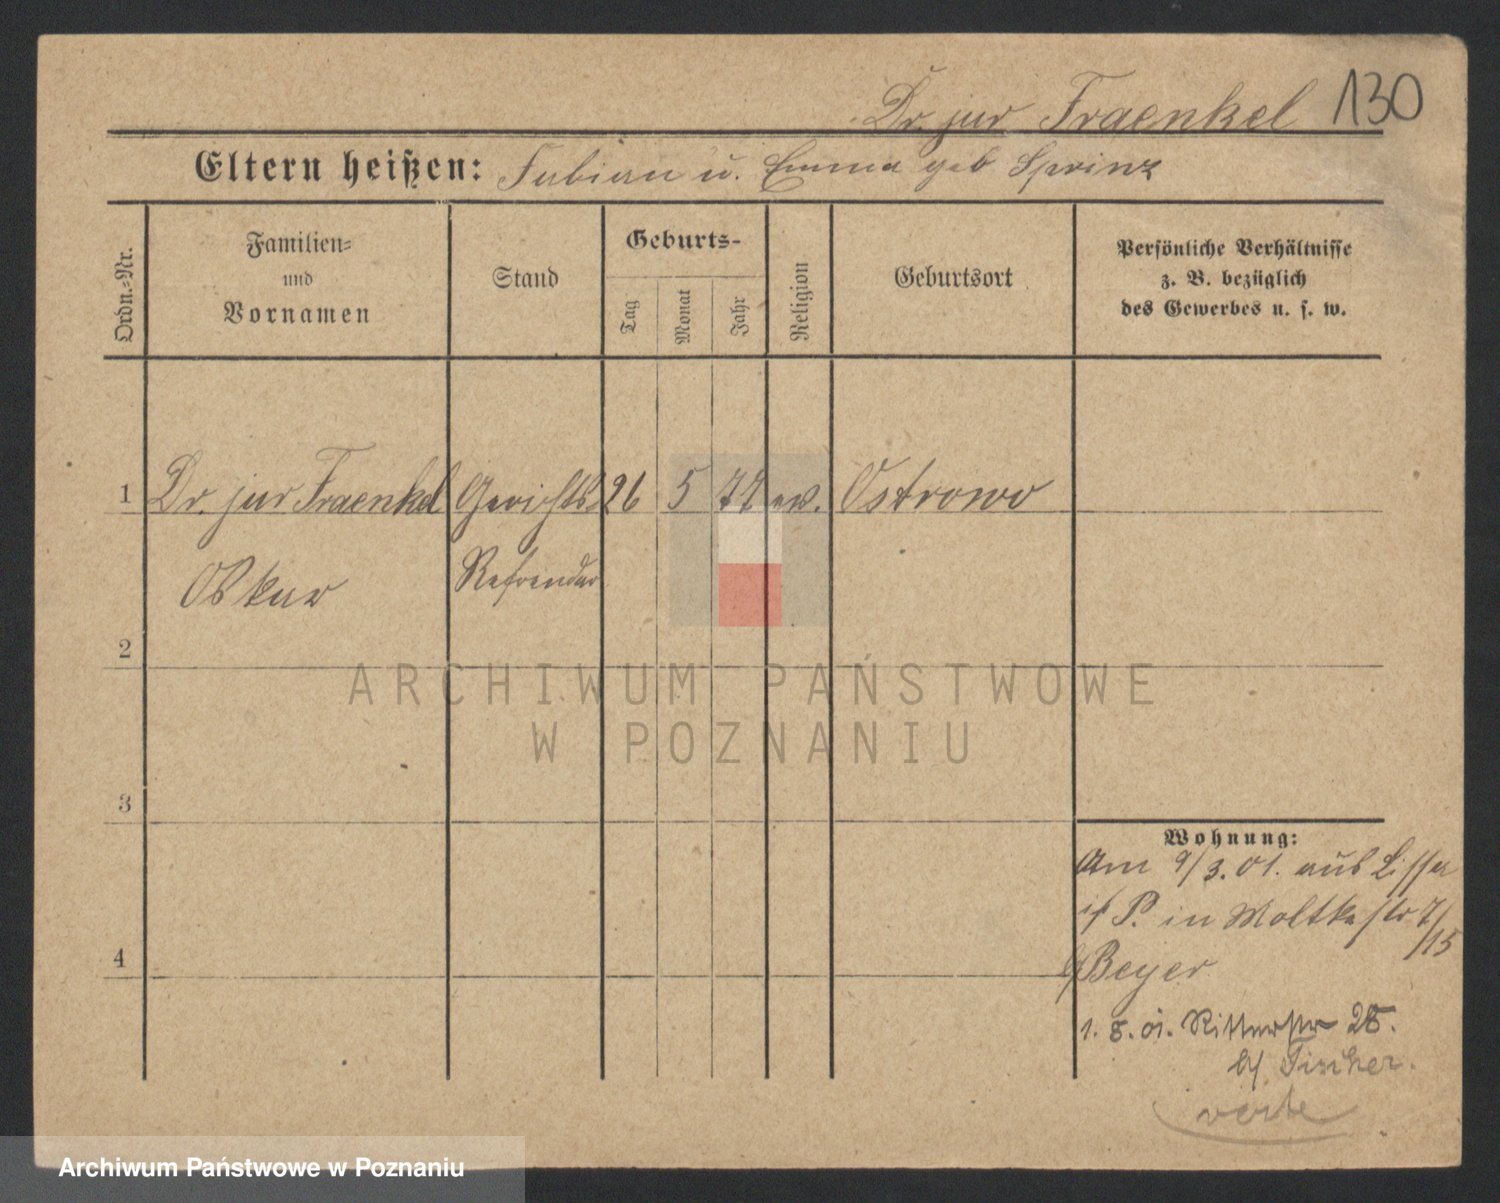 Dr. jur Fraenkel 130
Eltern heißen: Fabian u. Emma geb Sprinz
Ordn.-Nr.
Familien-
und
Vornamen
Stand
Geburts-
Tag
Monat
Jahr
Religion
Geburtsort
Persönliche Verhältnisse
z. B. bezüglich
des Gewerbes u. s. w.
1 Dr. jur Fraenkel Gerichts 26 5 77 ev. Ostrowo
Oskar Refrendar
2
3
4
Wohnung:
Am 9/3.01. aus Lissa
in Moltkestr 7/15
b/ Beyer
1. 8. 01. Ritterstr 28.
b/ Fischer.
verte
ARCHIWUM PAŃSTWOWE
W POZNANIU
Archiwum Państwowe w Poznaniu